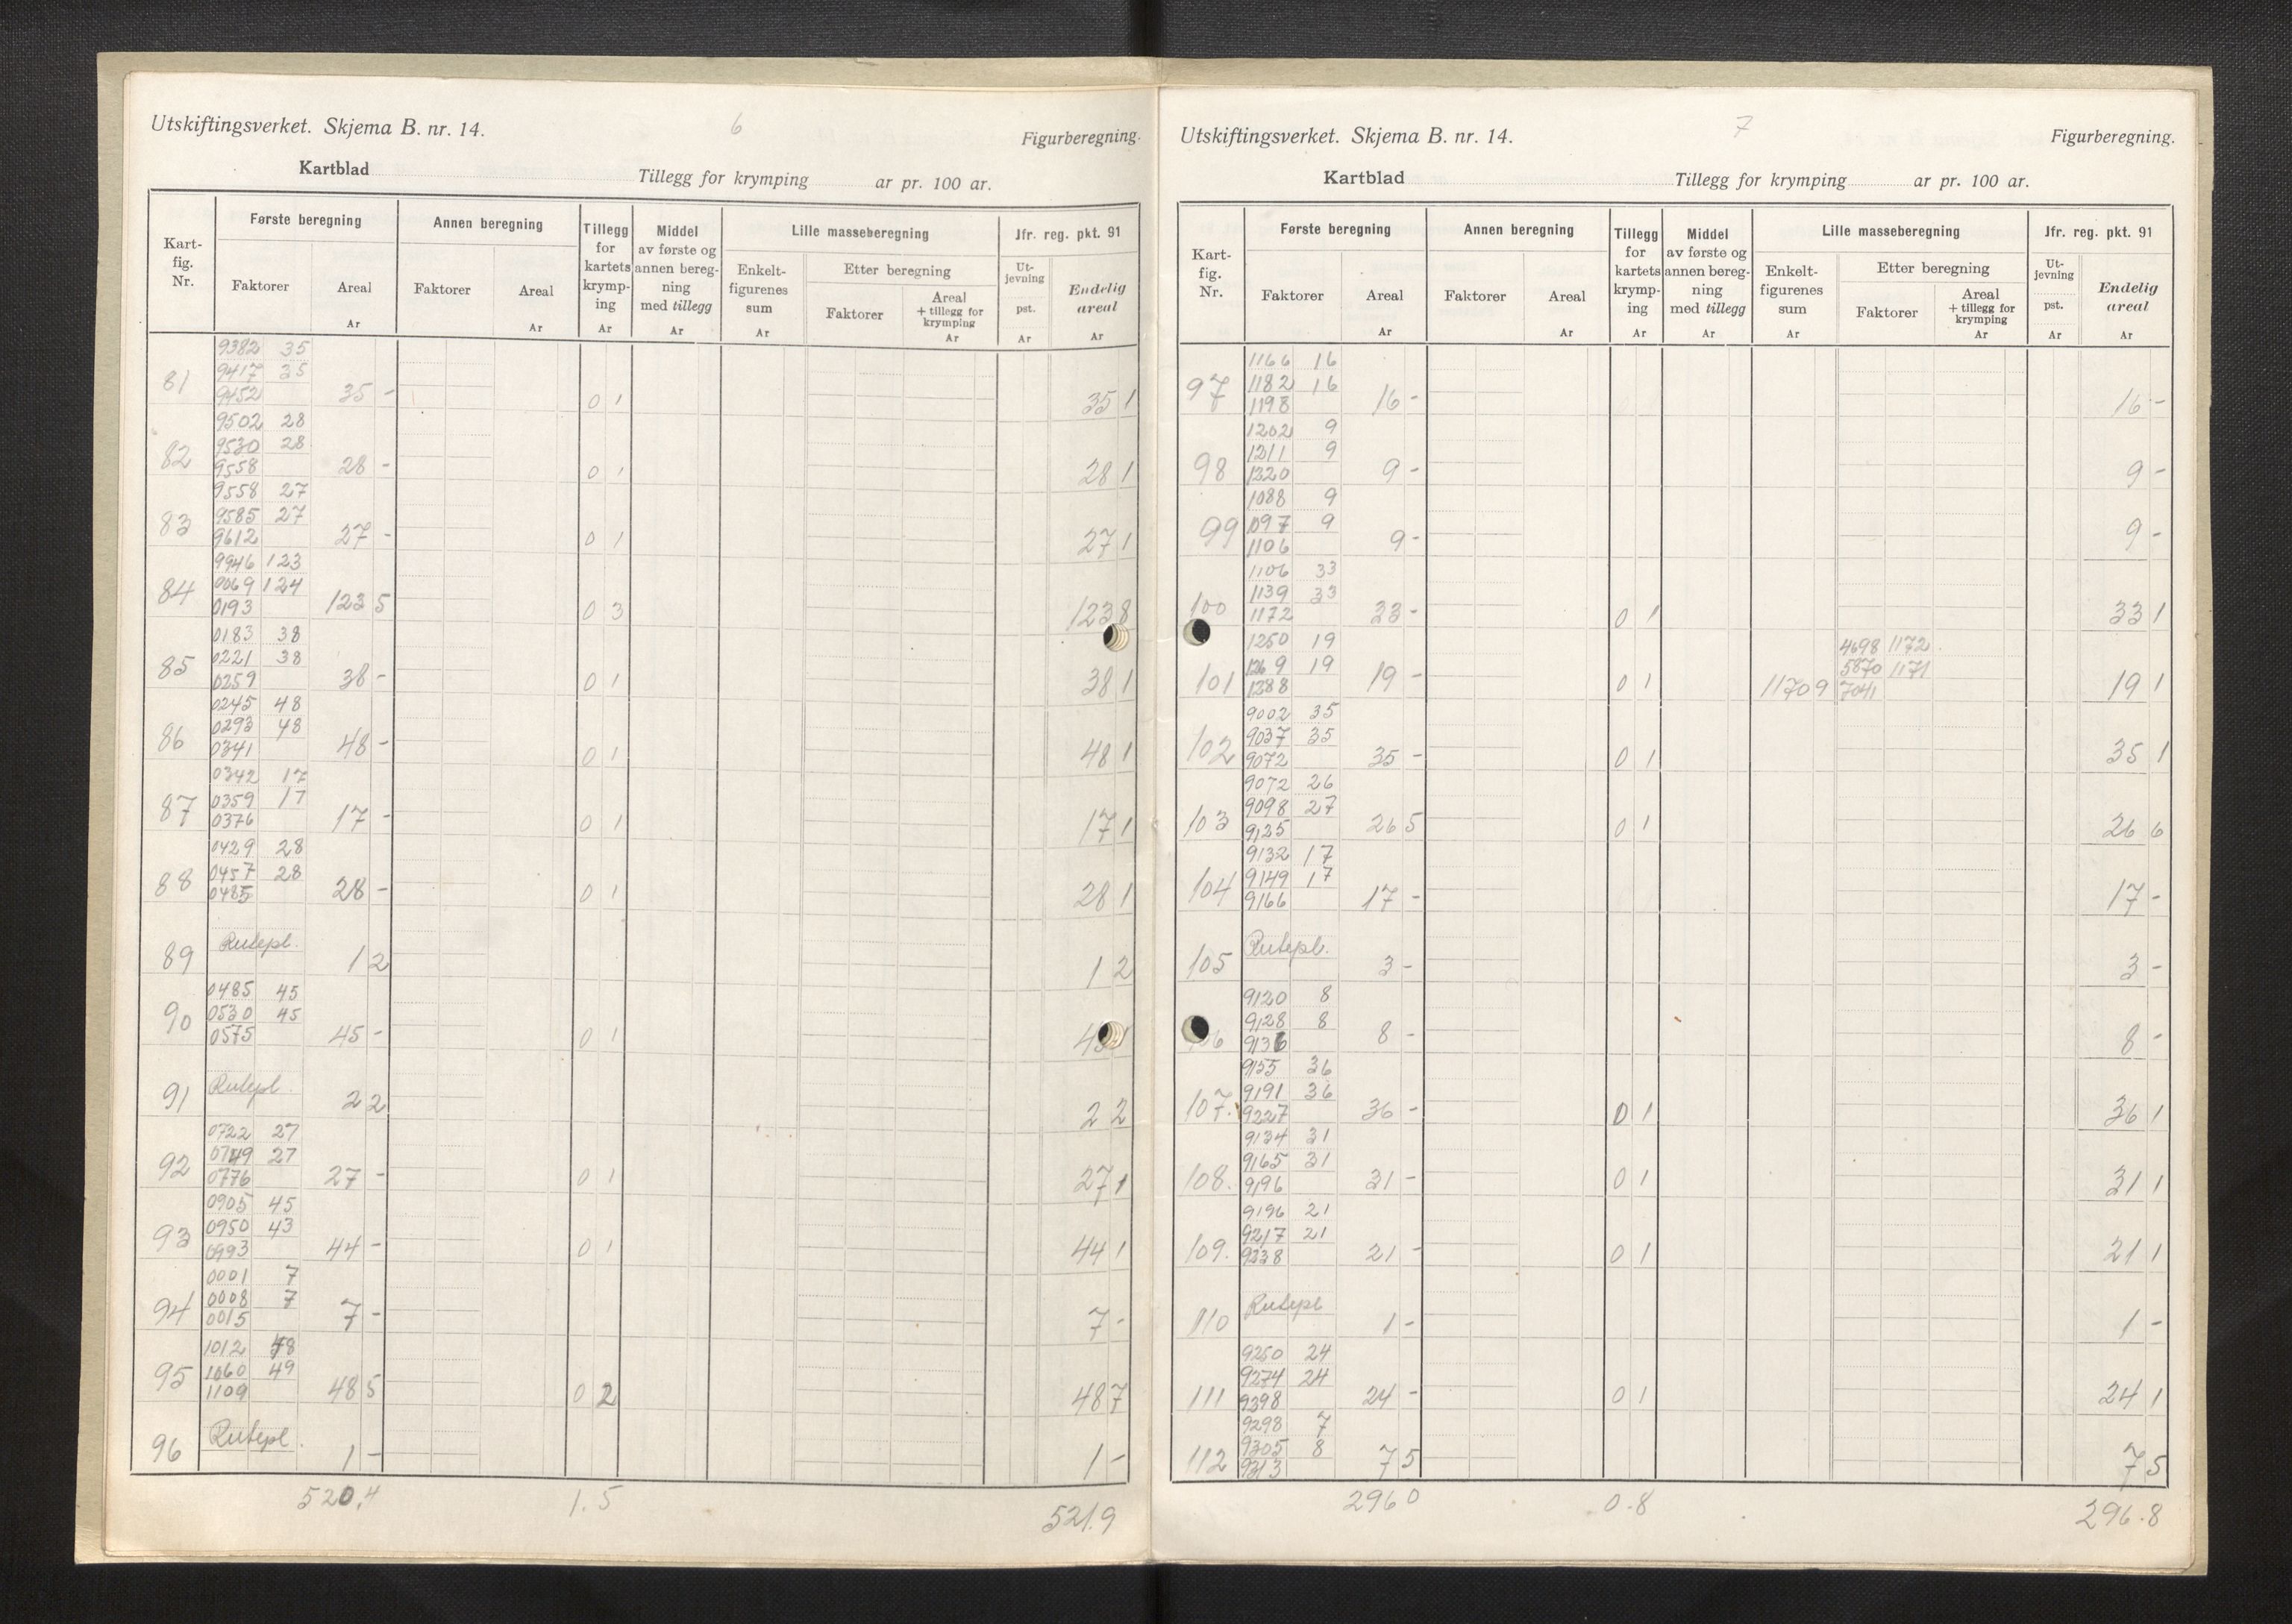 Utskiftingsverket. Skjema B. nr. 14.
6
Figurberegning.
Kartblad
Tillegg for krymping ar pr. 100 ar.
Kart-fig. Nr. Første beregning Annen beregning Tillegg for kartets krymp-ing Middel av første og annen bereg-ning med tillegg Lille masseberegning Jfr. reg. pkt. 91
Faktorer Areal Faktorer Areal Enkelt-figurenes sum Etter beregning Ut-jevning pst. Endelig areal
Faktorer Areal + tillegg for krymping
Ar Ar Ar Ar Ar Ar Ar Ar
9382 35
9417 35
81 9452 35 - 0 1 35 1
9502 28
9530 28
82 9558 28 - 0 1 28 1
9558 27
9585 27
83 9612 27 - 0 1 27 1
9946 123
0069 124
84 0193 123 5 0 3 123 8
0183 38
0221 38
85 0259 38 - 0 1 38 1
0245 48
0293 48
86 0341 48 - 0 1 48 1
0342 17
0359 17
87 0376 17 - 0 1 17 1
0429 28
0457 28
88 0485 28 - 0 1 28 1
Rutepl.
89 1 2 1 2
0485 45
0530 45
90 0575 45 - 0 1 45 1
Rutepl.
91 2 2 2 2
0722 27
0749 27
92 0776 27 - 0 1 27 1
0905 45
0950 43
93 0993 44 - 0 1 44 1
0001 7
0008 7
94 0015 7 - 7 -
1012 48
1060 49
95 1109 48 5 0 2 48 7
Rutepl.
96 1 - 1 -
520,4 1.5 521.9
Utskiftingsverket. Skjema B. nr. 14.
7
Figurberegning.
Kartblad
Tillegg for krymping ar pr. 100 ar.
Kart-fig. Nr. Første beregning Annen beregning Tillegg for kartets krymp-ing Middel av første og annen bereg-ning med tillegg Lille masseberegning Jfr. reg. pkt. 91
Faktorer Areal Faktorer Areal Enkelt-figurenes sum Etter beregning Ut-jevning pst. Endelig areal
Faktorer Areal + tillegg for krymping
Ar Ar Ar Ar Ar Ar Ar Ar
1166 16
1182 16
97 1198 16 - 16 -
1202 9
1211 9
98 1220 9 - 9 -
1088 9
1097 9
99 1106 9 - 9 -
1106 33
1139 33
100 1172 33 - 0 1 33 1
1250 19 4698 1172
1269 19 5870 1171
101 1288 19 - 0 1 1170 9 7041 19 1
9002 35
9037 35
102 9072 35 - 0 1 35 1
9072 26
9098 27
103 9125 26 5 0 1 26 6
9132 17
9149 17
104 9166 17 - 17 -
Rutepl.
105 3 - 3 -
9120 8
9128 8
106 9136 8 - 8 -
9155 36
9191 36
107. 9227 36 - 0 1 36 1
9134 31
9165 31
108. 9196 31 - 0 1 31 1
9196 21
9217 21
109. 9238 21 - 0 1 21 1
Rutepl
110 1 - 1 -
9250 24
9274 24
111 9298 24 - 0 1 24 1
9298 7
9305 8
112 9313 7 5 7 5
296 0 0.8 296.8